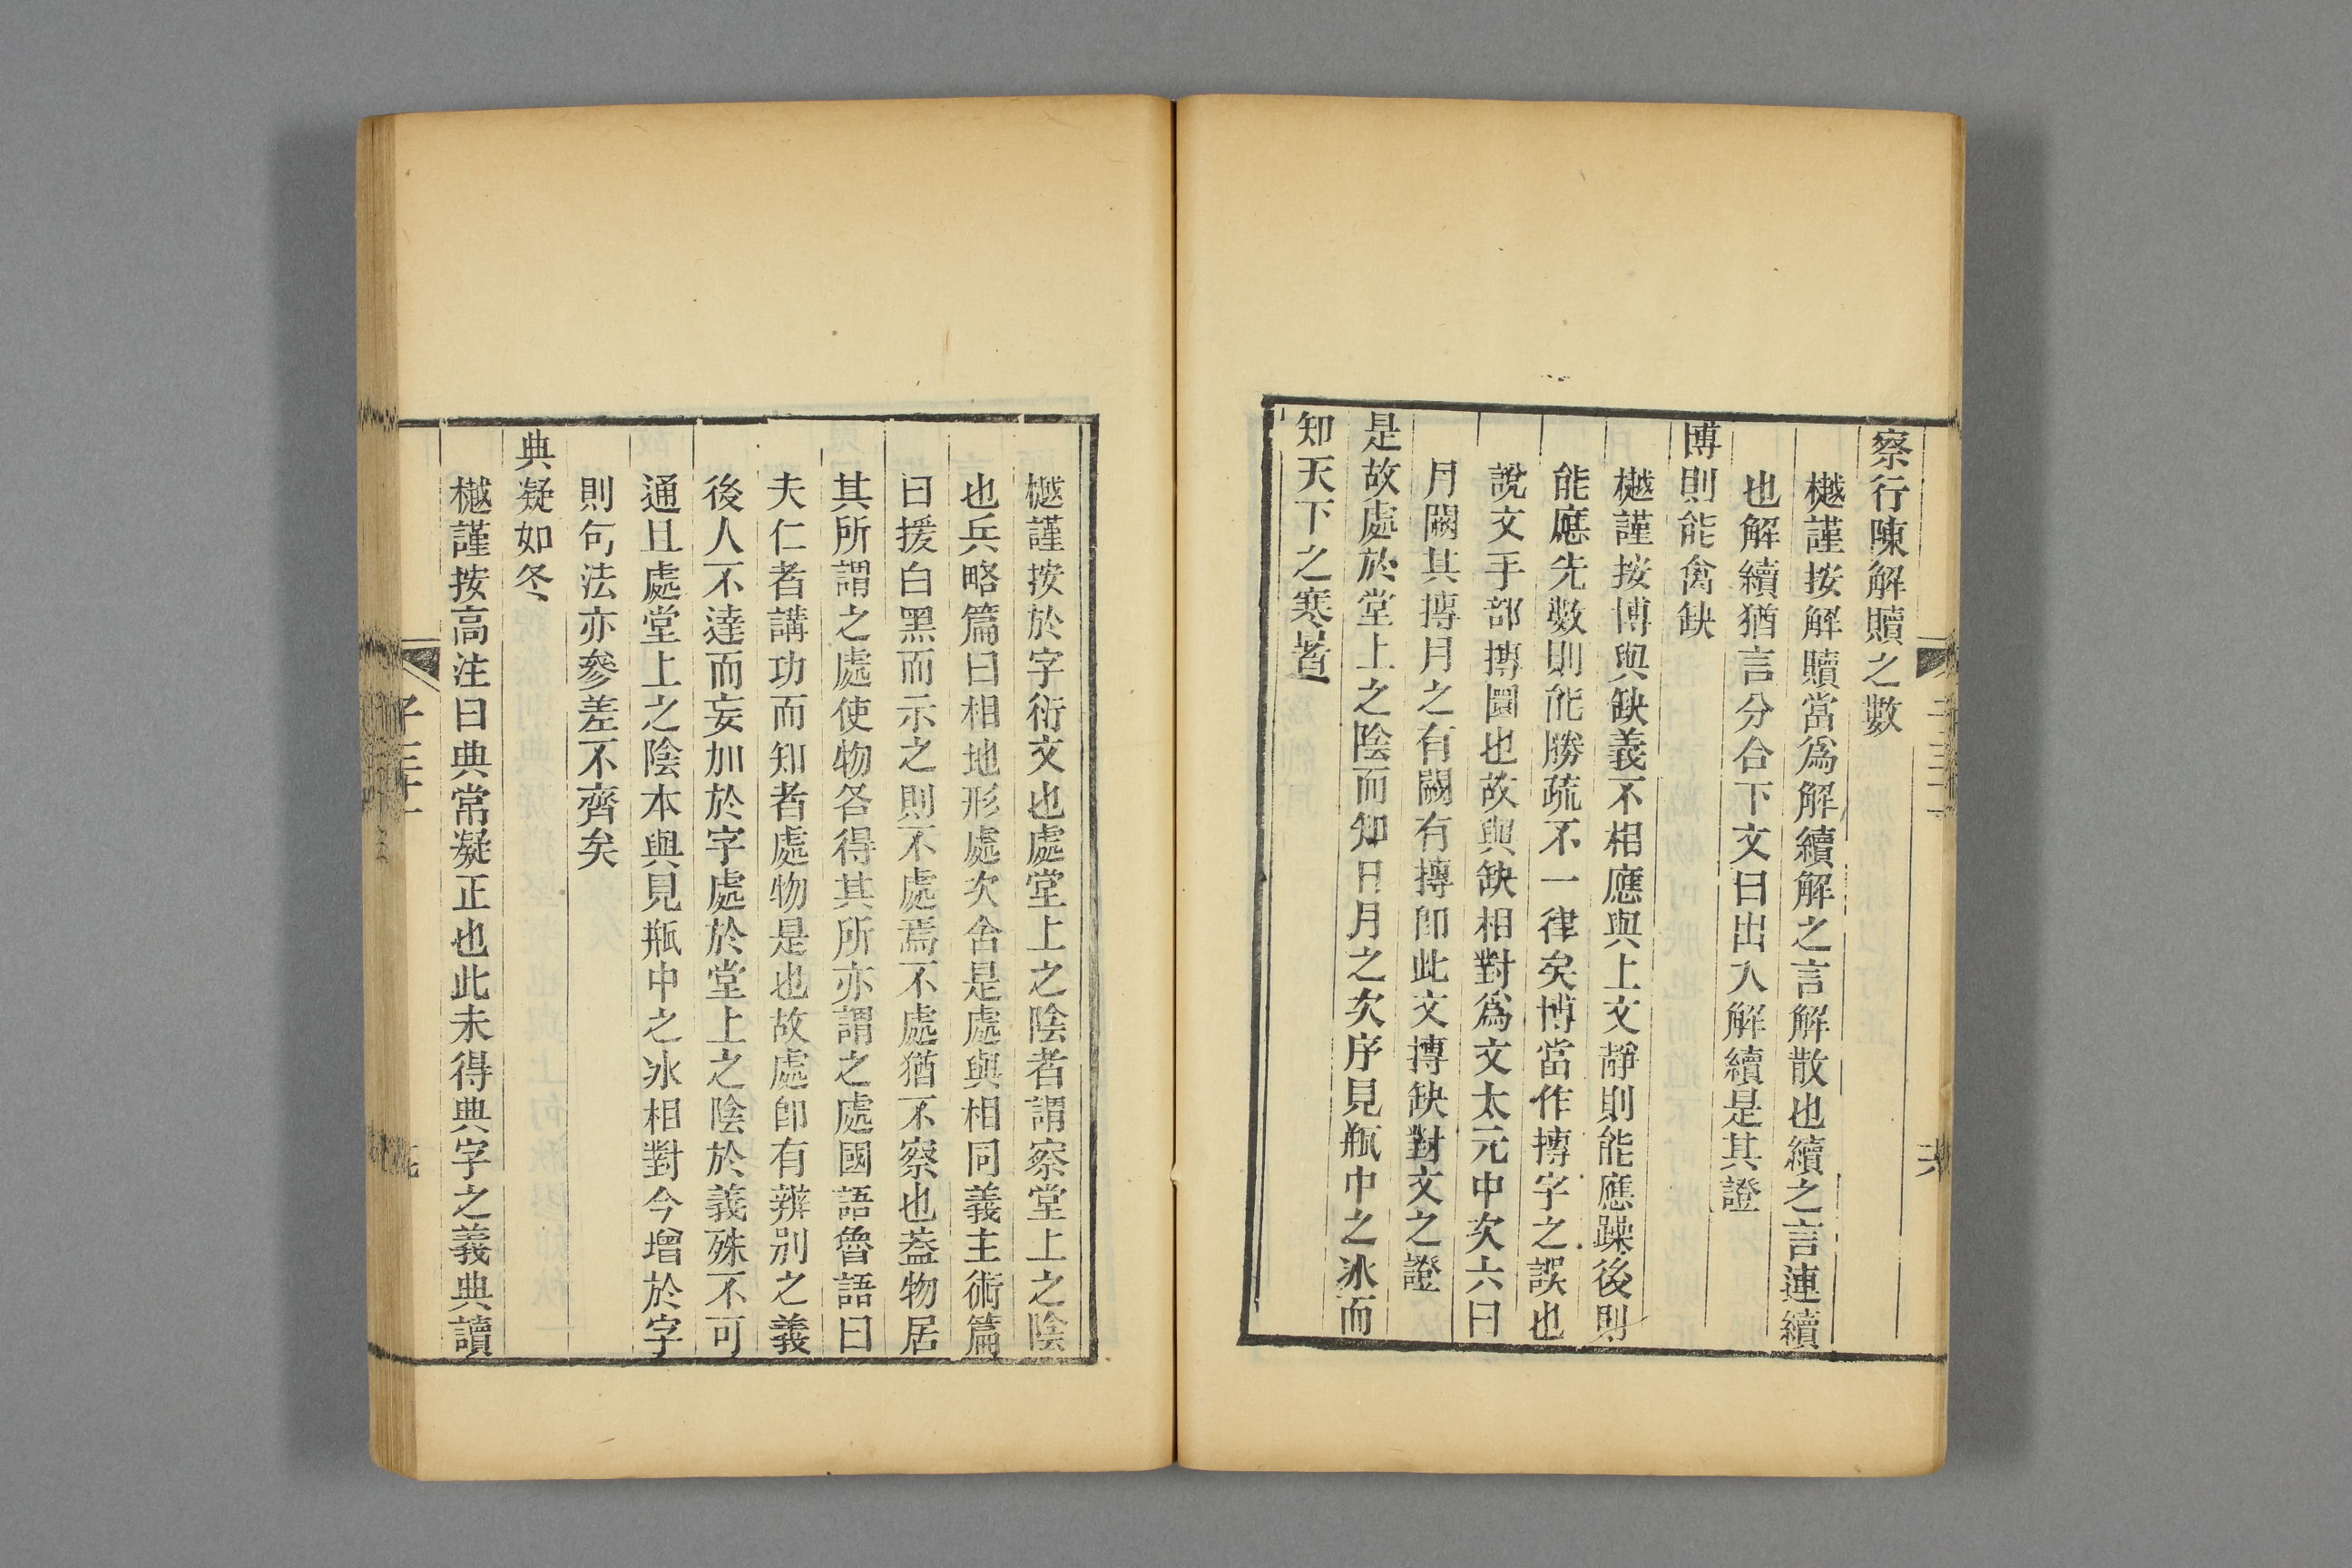 察行陳解贖之數
樾謹按解贖當爲解續解之言解散也續之言連續
也解續猶言分合下文曰出入解續是其證
博則能禽缺
樾謹按博與缺義不相應與上文靜則能應躁後則
能應先數則能勝疏不一律矣博當作摶字之誤也
說文手部摶圜也故與缺相對爲文太元中次六曰
月闕其摶月之有闕有摶卽此文摶缺對文之證
是故處於堂上之陰而知日月之次序見甁中之冰而
知天下之寒暑
樾謹按於字衍文也處堂上之陰者謂察堂上之陰
也兵略篇曰相地形處次舍是處與相同義主術篇
曰援白黑而示之則不處焉不處猶不察也葢物居
其所謂之處使物各得其所亦謂之處國語魯語曰
夫仁者講功而知者處物是也故處卽有辨別之義
後人不達而妄加於字處於堂上之陰於義殊不可
通且處堂上之陰本與見甁中之冰相對今增於字
則句法亦參差不齊矣
典凝如冬
樾謹按高注曰典常凝正也此未得典字之義典讀